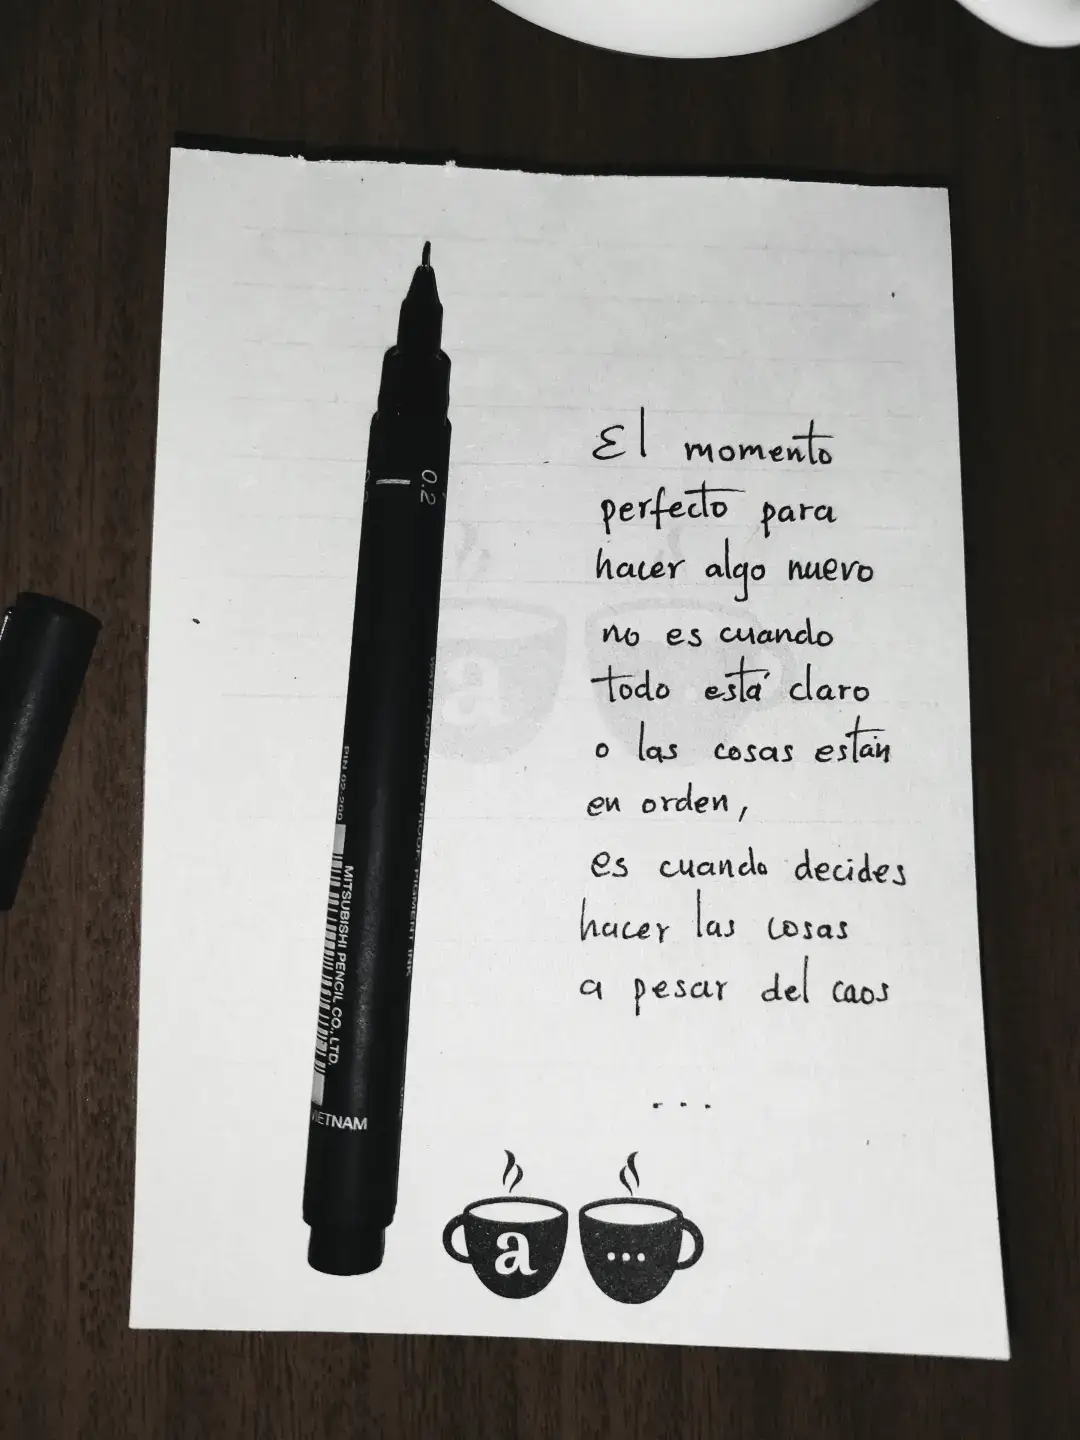 El momento
perfecto para
hacer algo nuevo
no es cuando
todo está claro
o las cosas están
en orden,
es cuando decides
hacer las cosas
a pesar del caos
...
a
...
0.2
WATER AND FADE PROOF, PIGMENT INK
PIN 02-200
MITSUBISHI PENCIL CO., LTD.
VIETNAM